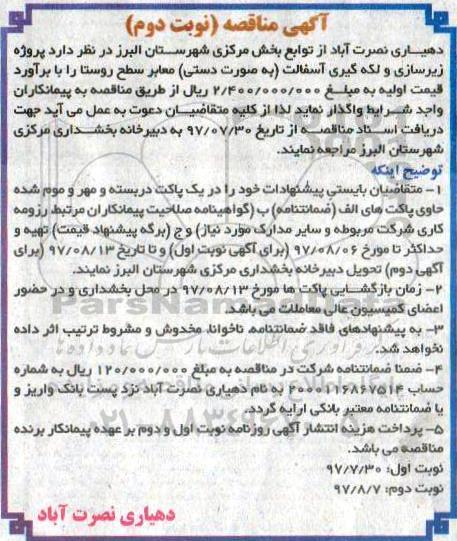 آگهی مناقصه (نوبت دوم)
دهیاری نصرت آباد از توابع بخش مرکزی شهرستان البرز در نظر دارد پروژه
زیرسازی و لکه گیری آسفالت (به صورت دستی) معابر سطح روستا را با برآورد
قیمت اولیه به مبلغ ۲/۴۰۰/۰۰۰/۰۰۰ ریال از طریق مناقصه به پیمانکاران
واجد شرایط واگذار نماید لذا از کلیه متقاضیان دعوت به عمل می آید جهت
دریافت اسناد مناقصه از تاریخ ۹۷/۰۷/۳۰ به دبیرخانه بخشداری مرکزی
شهرستان البرز مراجعه نمایند.
توضیح اینکه
۱- متقاضیان بایستی پیشنهادات خود را در یک پاکت دربسته و مهر و موم شده
حاوی پاکت های الف (ضمانتنامه) ب (گواهینامه صلاحیت پیمانکاران مرتبط، رزومه
کاری شرکت مربوطه و سایر مدارک مورد نیاز) و ج (برگه پیشنهاد قیمت) تهیه و
حداکثر تا مورخ ۹۷/۰۸/۰۶ (برای آگهی نوبت اول) و تا تاریخ ۹۷/۰۸/۱۳ (برای
آگهی دوم) تحویل دبیرخانه بخشداری مرکزی شهرستان البرز نمایند.
۲- زمان بازگشایی پاکت ها مورخ ۹۷/۰۸/۱۳ در محل بخشداری و در حضور
اعضای کمیسیون عالی معاملات می باشد.
۳- به پیشنهادهای فاقد ضمانتنامه، ناخوانا، مخدوش و مشروط ترتیب اثر داده
نخواهد شد.
۴- ضمنا ضمانتنامه شرکت در مناقصه به مبلغ ۱۲۰/۰۰۰/۰۰۰ ریال به شماره
حساب ۲۰۰۰۱۱۶۸۶۷۵۱۴ به نام دهیاری نصرت آباد نزد پست بانک واریز و
یا ضمانتنامه معتبر بانکی ارایه گردد.
۵- پرداخت هزینه انتشار آگهی روزنامه نوبت اول و دوم بر عهده پیمانکار برنده
مناقصه می باشد.
نوبت اول: ۹۷/۷/۳۰
نوبت دوم: ۹۷/۸/۷
دهیاری نصرت آباد